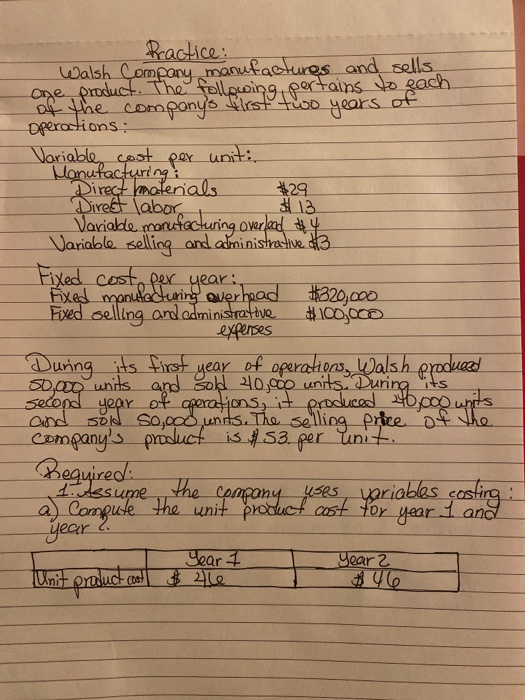 Practice:
Walsh Company manufactures and sells
one product. The following pertains to each
of the company's first two years of
operations:
Variable cost per unit:
Manufacturing:
Direct materials $29
Direct labor $13
Variable manufacturing overhead $4
Variable selling and administrative $3
Fixed cost per year:
Fixed manufacturing overhead $320,000
Fixed selling and administrative $100,000
expenses
During its first year of operations, Walsh produced
50,000 units and sold 40,000 units. During its
second year of operations, it produced 40,000 units
and sold 50,000 units. The selling price of the
company's product is $53 per unit.
Required:
1. Assume the company uses variables costing:
a) Compute the unit product cost for year 1 and
year 2.
Year 1 Year 2
Unit product cost $ 46 $ 46